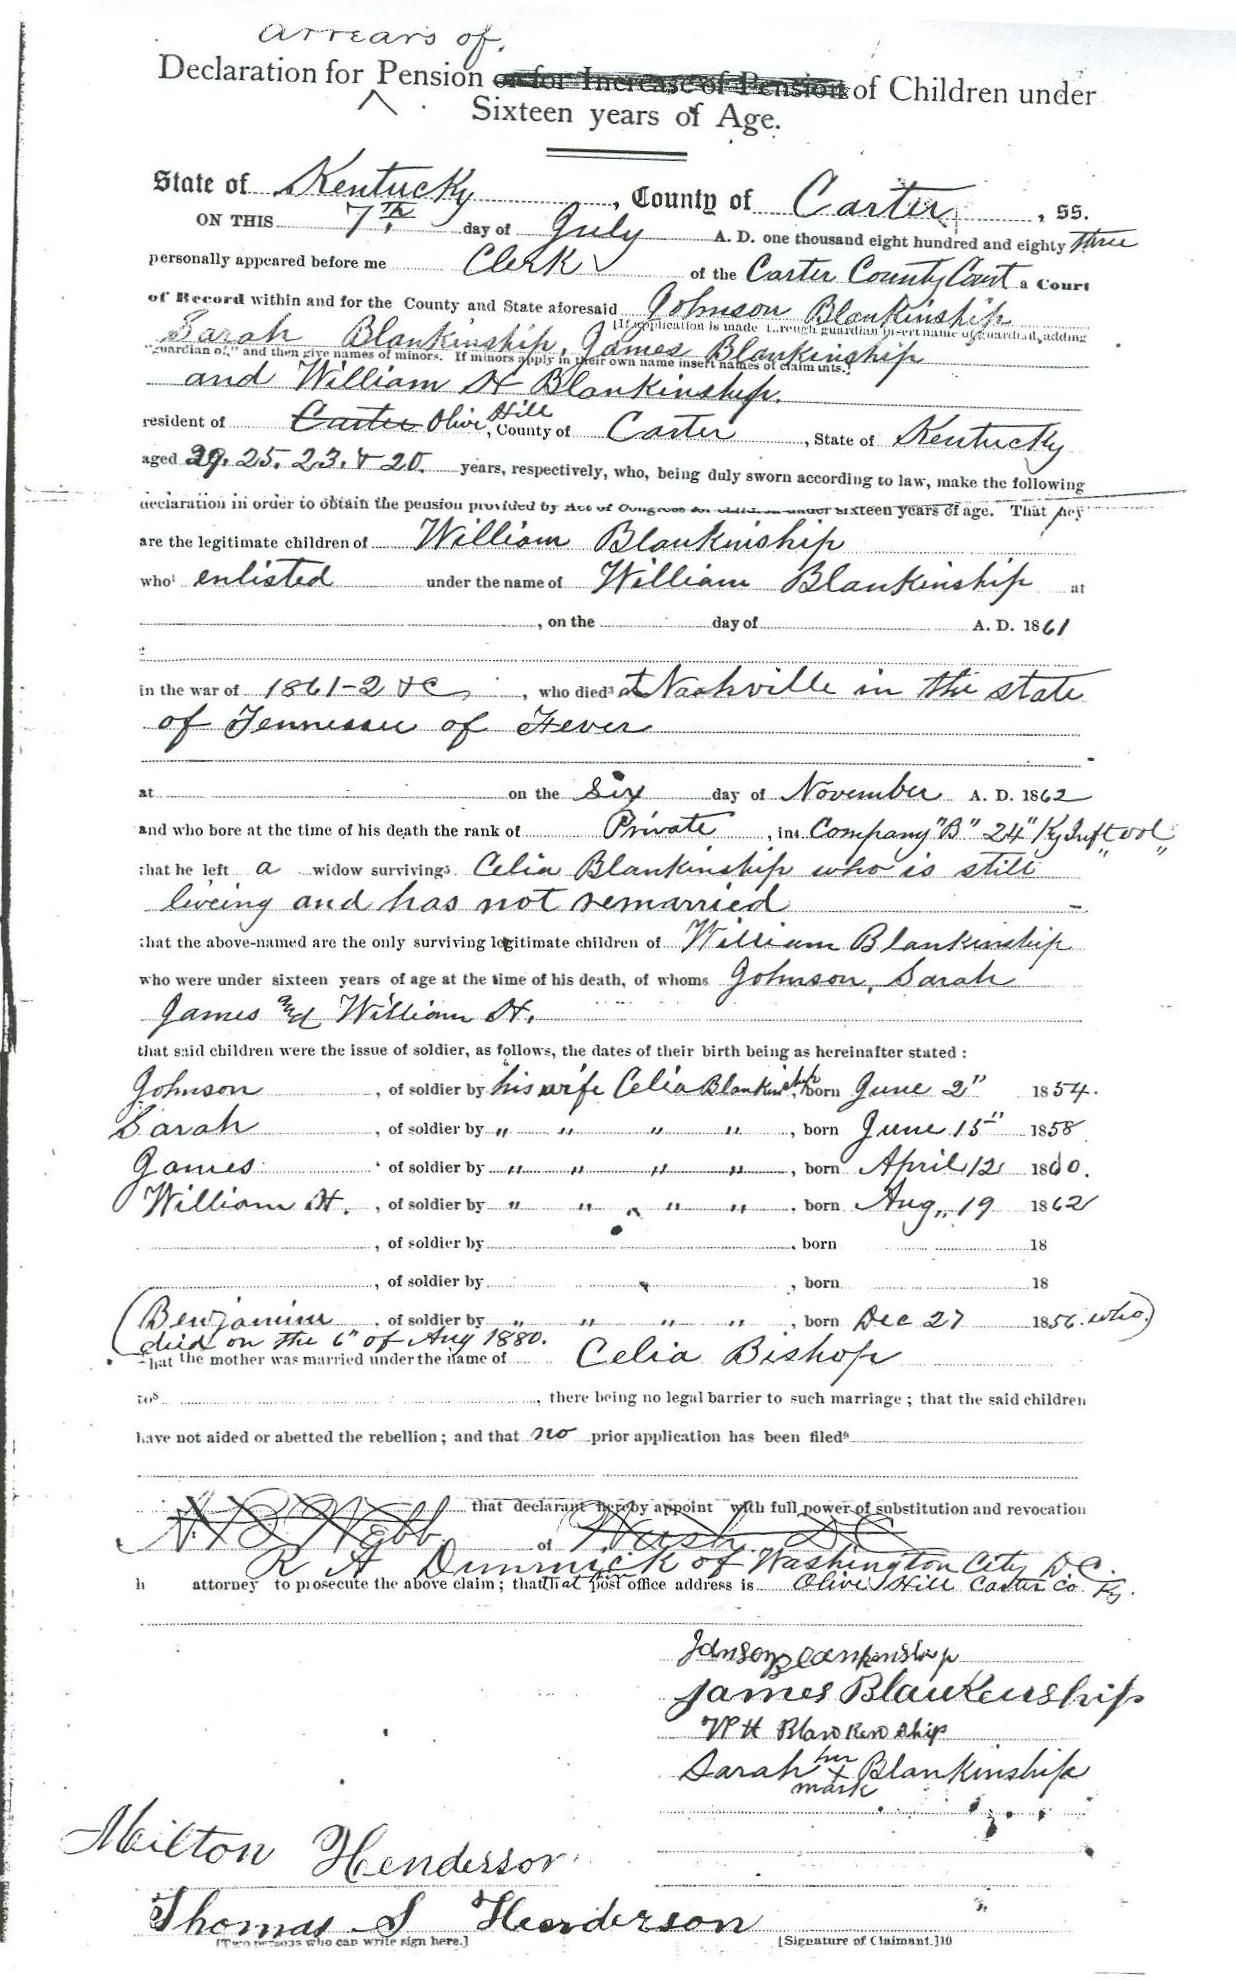 arrears of
Declaration for Pension or for Increase of Pension of Children under
Sixteen years of Age.
State of Kentucky, County of Carter, SS.
ON THIS 7th day of July A. D. one thousand eight hundred and eighty three
personally appeared before me Clerk of the Carter County Court a Court
of Record within and for the County and State aforesaid Johnson Blankinship
[If application is made through guardian insert name of guardian, adding
Sarah Blankinship, James Blankinship
"guardian of," and then give names of minors. If minors apply in their own name insert names of claimants.]
and William H Blankinship.
resident of Carter Olive Hill, County of Carter, State of Kentucky
aged 29. 25. 23. & 20. years, respectively, who, being duly sworn according to law, make the following
declaration in order to obtain the pension provided by Act of Congress for children under sixteen years of age. That they
are the legitimate children of William Blankinship
who enlisted under the name of William Blankinship at
, on the day of A. D. 1861
in the war of 1861-2 &c, who died at Nashville in the state
of Tennessee of Fever
at on the Six day of November A. D. 1862
and who bore at the time of his death the rank of Private, in Company "B" 24" Ky Inft vol
that he left a widow surviving Celia Blankinship who is still
liveing and has not remarried
that the above-named are the only surviving legitimate children of William Blankinship
who were under sixteen years of age at the time of his death, of whom Johnson, Sarah
James and William H.
that said children were the issue of soldier, as follows, the dates of their birth being as hereinafter stated :
Johnson, of soldier by his wife Celia Blankinship, born June 2" 1854.
Sarah, of soldier by " " " ", born June 15" 1858
James, of soldier by " " " ", born April 12 1860.
William H., of soldier by " " " ", born Aug. 19 1862
, of soldier by, born 18
, of soldier by, born 18
(Benjamine, of soldier by " " " ", born Dec 27 1856. who)
died on the 6" of Aug 1880.
That the mother was married under the name of Celia Bishop
to8, there being no legal barrier to such marriage ; that the said children
have not aided or abetted the rebellion ; and that no prior application has been filed9
that declarant hereby appoint with full power of substitution and revocation
N B Webb of Wash. D C
R A Dimmick of Washington City D.C.
h attorney to prosecute the above claim ; that their post office address is Olive Hill Carter co Ky.
Jonson Blankinship
James Blankenship
W H Blankenship
Sarah her x mark Blankinship
Milton Henderson
Thomas S Henderson
[Two persons who can write sign here.] [Signature of Claimant.]10